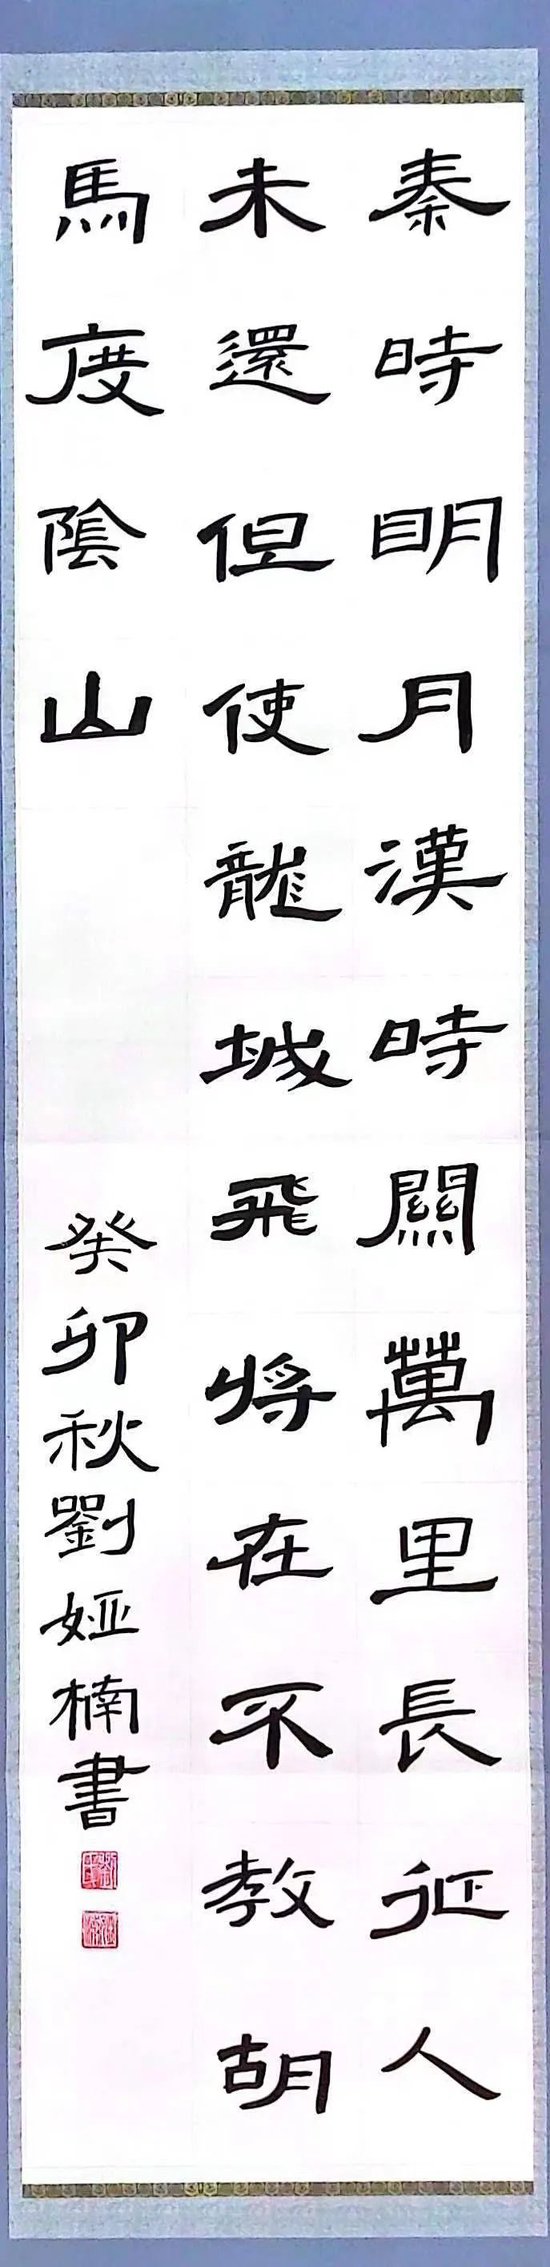 秦時明月漢時關萬里長征人
未還但使龍城飛將在不教胡
馬度陰山
癸卯秋劉娅楠書